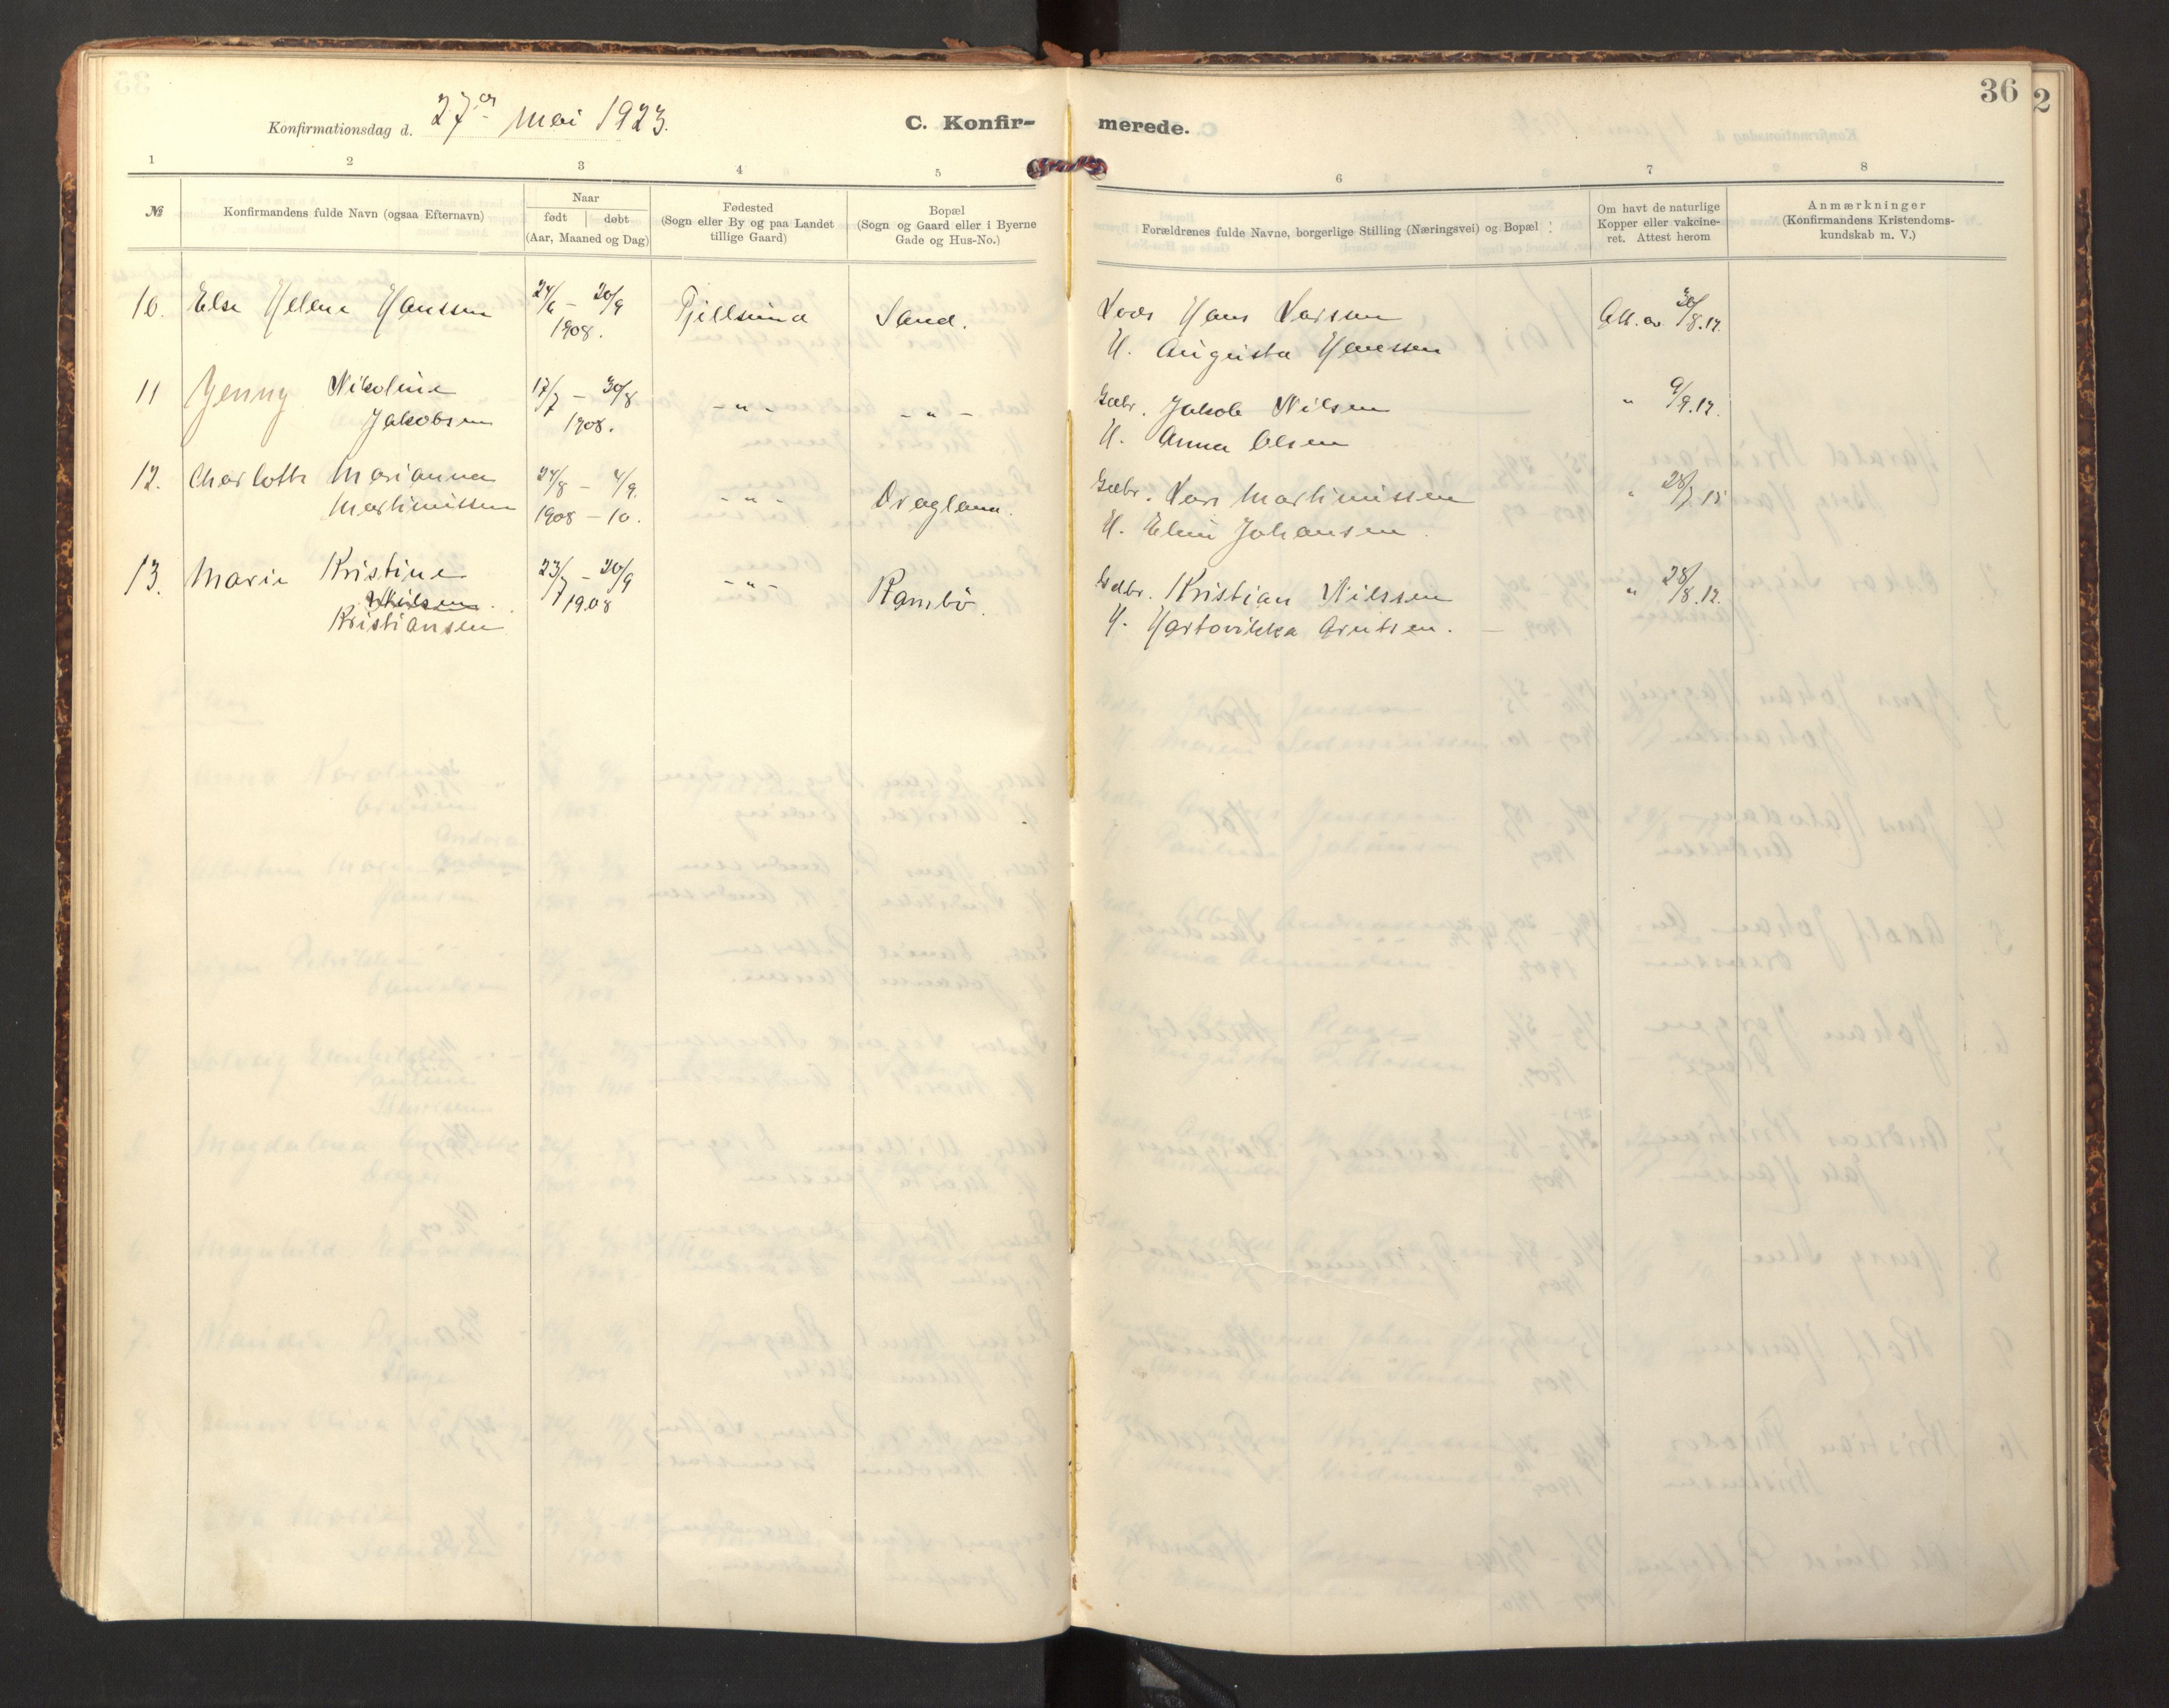 36
2
Konfirmationsdag d. 27de mai 1923.
C. Konfir-
merede.
1 2 3 4 5
6 7 8
№
Konfirmandens fulde Navn (ogsaa Efternavn)
Naar
født døbt
(Aar, Maaned og Dag)
Fødested
(Sogn eller By og paa Landet
tillige Gaard)
Bopæl
(Sogn og Gaard eller i Byerne
Gade og Hus-No.)
Forældrenes fulde Navne, borgerlige Stilling (Næringsvei) og Bopæl
Om havt de naturlige
Kopper eller vakcine-
ret. Attest herom
Anmærkninger
(Konfirmandens Kristendoms-
kundskab m. V.)
10. Else Helene Hanssen 24/6 - 20/9 Fjellsund Sand. Hans Larssen Att. av 30/8.17.
1908. H. Augusta Hanssen
11 Jenny Nikoline 17/7 - 30/8 - " - - " - Gdbr. Jakob Nilsen " 9/9.17.
Jakobsen 1908. H. Anna Olsen
12. Charlotte Marianna 24/8 - 4/9. - " - Dragland. Gdbr. Lars Martinussen " 28/7.15
Martinussen 1908 - 10. H. Eline Johansen.
13. Marie Kristine 23/7 - 20/9 - " - Rambö. Gdbr. Kristian Nilssen " 28/8.17.
Nilsen. 1908 H. Hartvikka Arntsen.
Kristiansen